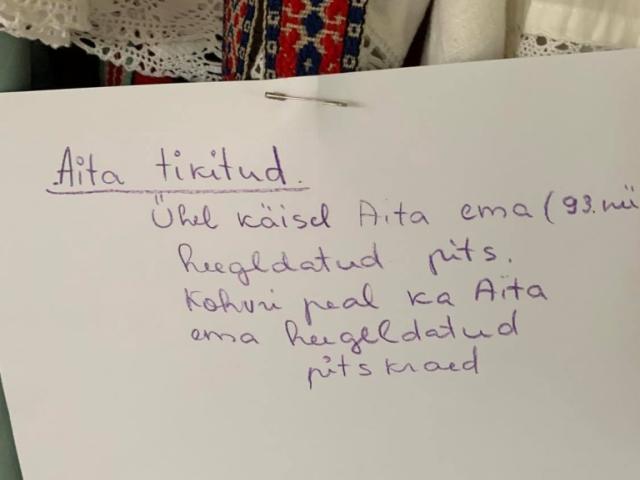 Aita tikitud.
Ühel käisel Aita ema (93.
heegldatud pits.
Kohvri peal ka Aita
ema heegeldatud
pitskraed